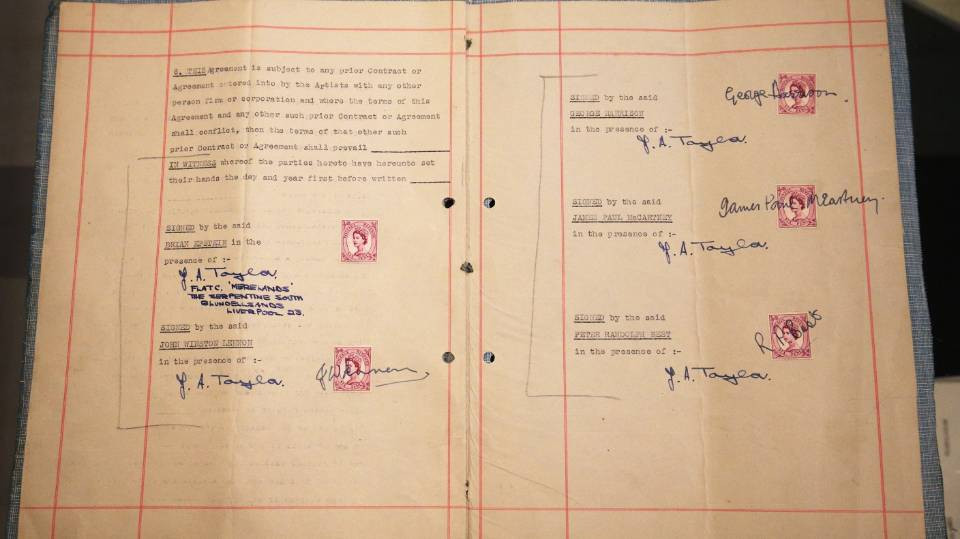 6. THIS Agreement is subject to any prior Contract or
Agreement entered into by the Artists with any other
person firm or corporation and where the terms of this
Agreement and any other such prior Contract or Agreement
shall conflict, then the terms of that other such
prior Contract or Agreement shall prevail
IN WITNESS whereof the parties hereto have hereunto set
their hands the day and year first before written
SIGNED by the said
BRIAN EPSTEIN in the
presence of :-
J. A. Taylor.
FLAT C, 'MERELANDS'
THE SERPENTINE SOUTH
BLUNDELLSANDS
LIVERPOOL 23.
SIGNED by the said
JOHN WINSTON LENNON
in the presence of :-
J. A. Taylor.
J W Lennon
SIGNED by the said
GEORGE HARRISON
in the presence of :-
George Harrison.
J. A. Taylor.
SIGNED by the said
JAMES PAUL McCARTNEY
in the presence of :-
James Paul McCartney.
J. A. Taylor.
SIGNED by the said
PETER RANDOLPH BEST
in the presence of :-
R. P. Best
J. A. Taylor.